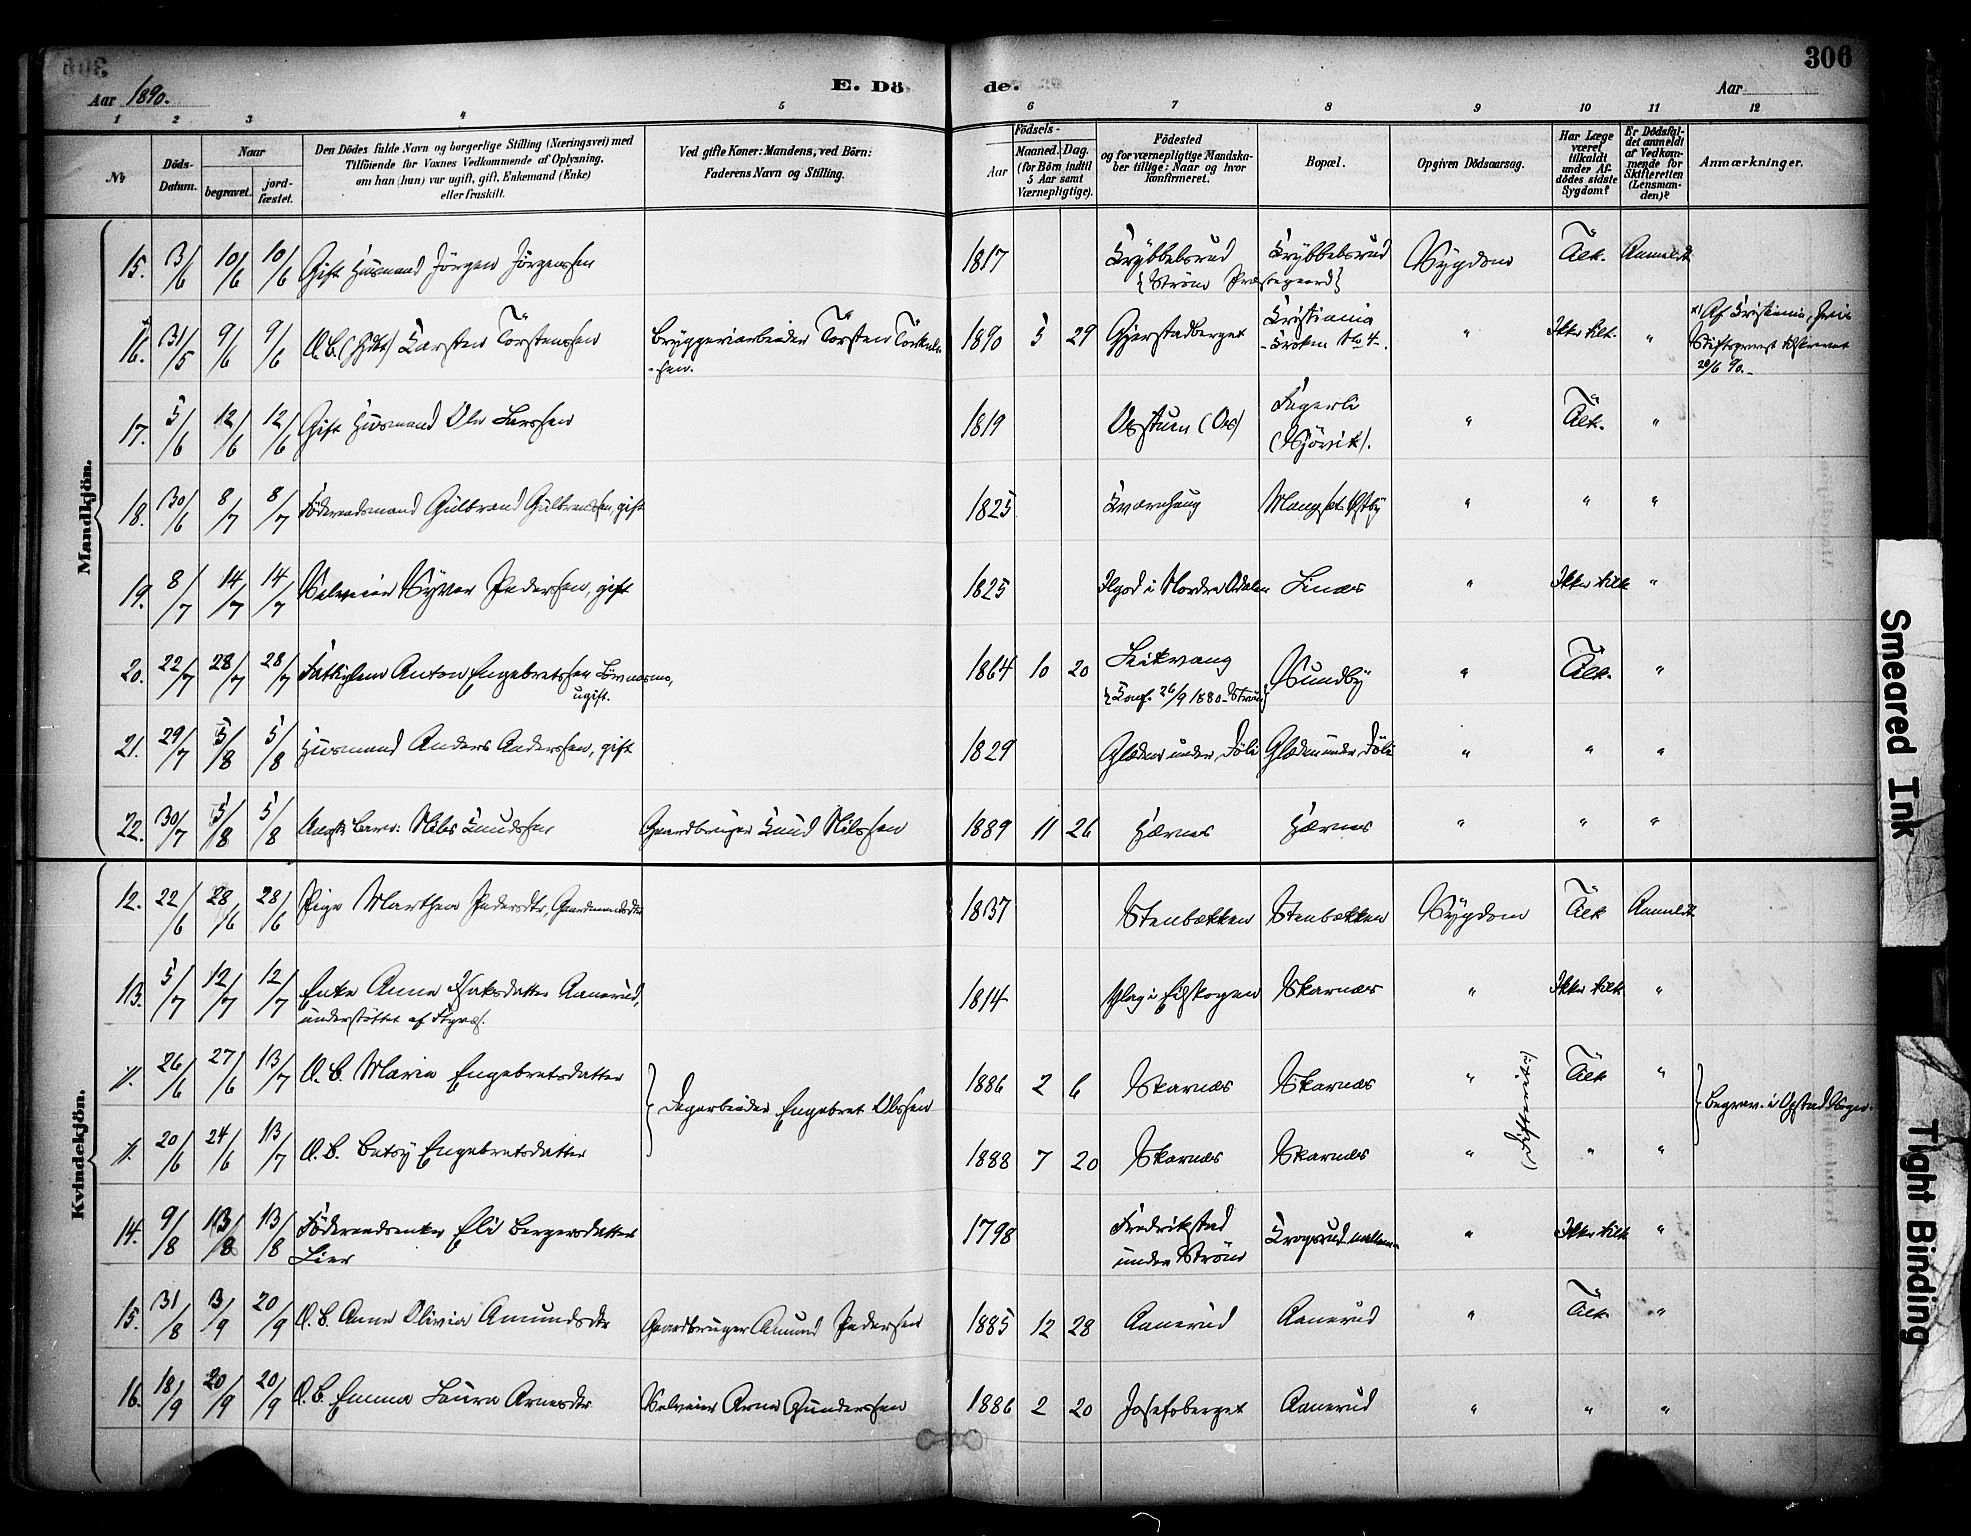 306
Aar 1890.
E. Dö
de.
Aar
1 2 3 4 5 6 7 8 9 10 11 12
№
Döds-
Datum.
Naar
begravet.
jord-
fæstet.
Den Dödes fulde Navn og borgerlige Stilling (Næringsvei) med
Tilföiende for Voxnes Vedkommende af Oplysning,
om han (hun) var ugift, gift, Enkemand (Enke)
eller fraskilt.
Ved gifte Koner: Mandens, ved Börn:
Faderens Navn og Stilling.
Födsels-
Aar
Maaned. Dag.
(for Börn indtil
5 Aar samt
Værnepligtige).
Födested
og for værnepligtige Mandska-
ber tillige: Naar og hvor
konfirmeret.
Bopæl.
Opgiven Dödsaarsag.
Har Læge
været
tilkaldt
under Af-
dödes sidste
Sygdom?
Er Dödsfal-
det anmeldt
af Vedkom-
mende for
Skifteretten
(Lensman-
den)?
Anmærkninger.
Mandkjön.
15. 3/6 10/6 10/6 Gift Husmand Jörgen Jörgenssen 1817 Krybbelsrud Krybbelsrud Sygdom Tilk. Anmeldt
{Ström Præstegaard}
16. 31/5 9/6 9/6 U. B. (Hdt) Karsten Torstenssen Bryggeriarbeider Torsten Torkels-
-sen. 1890 5 29 Gjerstadberget Kristiania
Kroken No 4. " Ikke tilk. " Af Kristiania,
Stiftsprovst tilskrevet
28/6 90.
17. 5/6 12/6 12/6 Gift Husmand Ole Larssen 1819 Usstuen (Os) Fagerli
(Sjövik). " Tilk. "
18. 30/6 8/7 8/7 Föderaadsmand Gulbrand Gulbrandssen, gift 1825 Kværnhaug Mangset Østby " " "
19. 8/7 14/7 14/7 Selveier Syver Pederssen, gift 1825 i Nordre Odalen Linæs " Ikke tilk "
20. 22/7 28/7 28/7 Fattiglem Anton Engebretssen
ugift. 1864 10 20 Leikvang
{Konf. 26/9 1880 Ström} Sundby " Tilk. "
21. 29/7 5/8 5/8 Husmand Anders Anderssen, gift 1829 Glæden under Döli Glæden under Döli " " "
22. 30/7 5/8 5/8 Ægte Barn: Nils Knudssen Gaardbruger Knud Nilssen 1889 11 26 Hærnes Hærnes " " "
Kvindekjön.
12. 22/6 28/6 28/6 Pige Marthea Pedersdtr, Gaardmandsdtr 1837 Stenbækken Stenbækken Sygdom Tilk Anmeldt
13. 5/7 12/7 12/7 Enke Anne Isaksdatter Aanerud,
understöttet af Fgvæs. 1814 i Eidskogen Skarnæs " Ikke tilk "
11. 26/6 27/6 13/7 U. B. Maria Engebretsdatter Dagarbeider Engebret Olssen 1886 2 6 Skarnæs Skarnæs " (Difterit:) Tilk " Begrav. i Opstad Sogn.
11. 20/6 24/6 13/7 U. B. Betsy Engebretsdatter 1888 7 20 Skarnæs Skarnæs " " "
14. 9/8 13/8 13/8 Föderaadsenke Eli Bergersdatter
Lier 1798 Fredrikstad
under Ström Krogsrud mellem " Ikke tilk "
15. 31/8 3/9 20/9 U. B. Anne Olivia Amundsdtr Gaardbruger Amund Pederssen 1885 12 28 Aanerud Aanerud " Tilk. "
16. 18/9 20/9 20/9 U. B. Emma Laura Arnesdtr Selveier Arne Gunderssen 1886 2 20 Josefsberget Aanerud " " "
Smeared Ink
Tight Binding